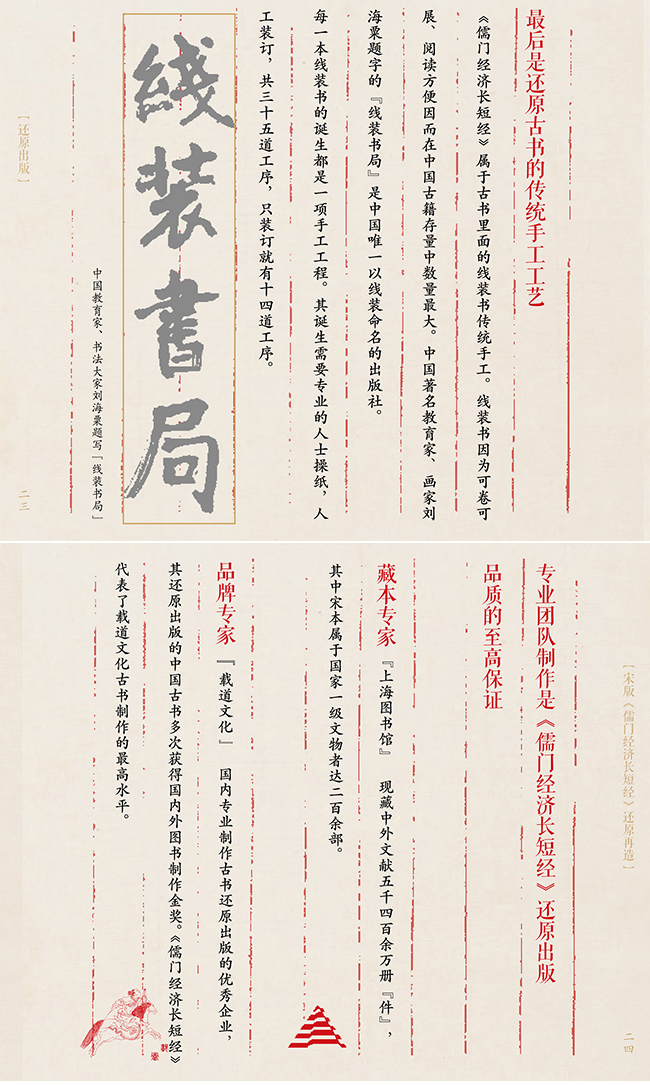 最后是还原古书的传统手工工艺
《儒门经济长短经》属于古书里面的线装书传统手工。线装书因为可卷可
展、阅读方便因而在中国古籍存量中数量最大。中国著名教育家、画家刘
海粟题字的『线装书局』是中国唯一以线装命名的出版社。
每一本线装书的诞生都是一项手工工程。其诞生需要专业的人士操纸，人
工装订，共三十五道工序，只装订就有十四道工序。
綫裝書局
中国教育家、书法大家刘海粟题写『线装书局』
［还原出版］
二三
［宋版《儒门经济长短经》还原再造］
二四
专业团队制作是《儒门经济长短经》还原出版
品质的至高保证
藏本专家 『上海图书馆』 现藏中外文献五千四百余万册『件』，
其中宋本属于国家一级文物者达二百余部。
品牌专家 『载道文化』 国内专业制作古书还原出版的优秀企业，
其还原出版的中国古书多次获得国内外图书制作金奖。《儒门经济长短经》
代表了载道文化古书制作的最高水平。